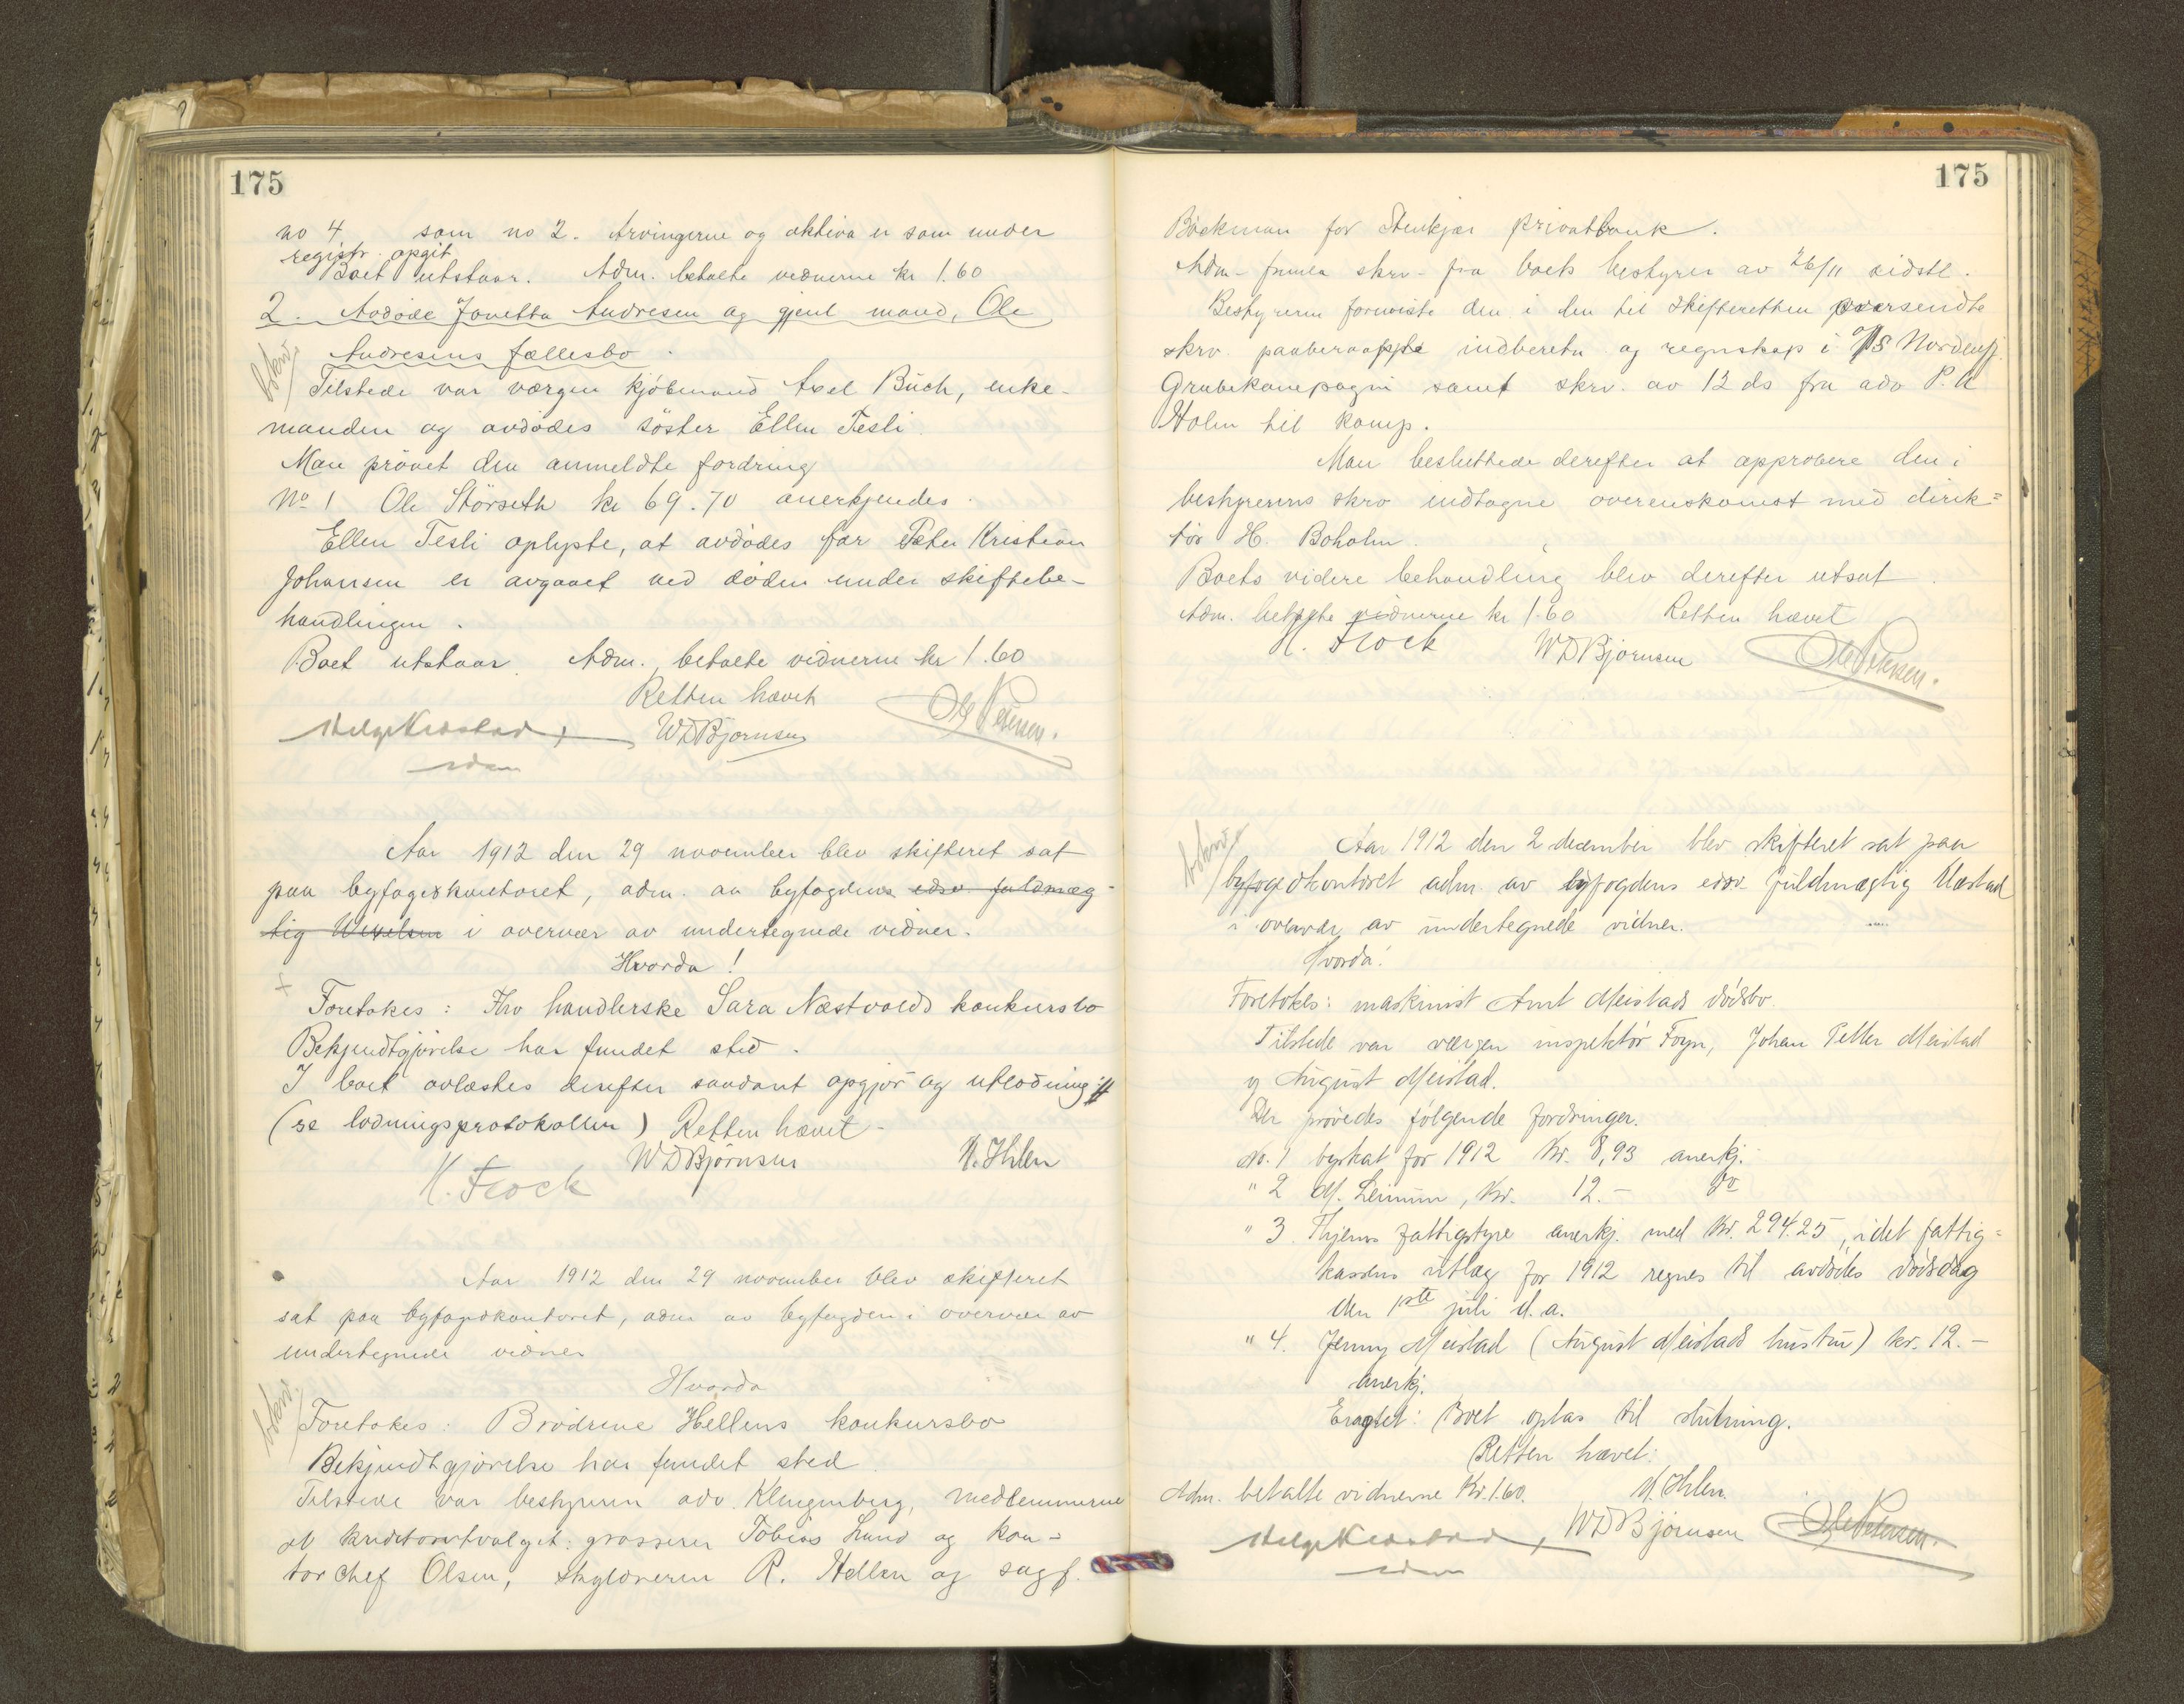 175
no 4 som no 2. Arvingerne og aktiva er som under
registr. opgit
Boet utstaar. Adm. betalte vidnerne kr 1.60
2. Avdöde Jonetta Andresen og gjenl mand, Ole
Andresens fællesbo.
Tilstede var værgen kjöbmand Axel Buch, enke-
manden og avdödes söster Ellen Tesli
Man prövet den anmeldte fordring
No 1 Ole Störseth kr 69.70 anerkjendes.
Ellen Tesli oplyste, at avdödes far Peter Kristian
Johansen er avgaaet ved döden under skiftebe-
handlingen.
Boet utstaar. Adm. betalte vidnerne kr 1.60
Retten hævet
WDBjörnsen Ole Petersen.
Aar 1912 den 29 november blev skifteret sat
paa byfogdkontoret, adm. av byfogdens edsv. fuldmæg-
tig Wexelsen i overvær av undertegnede vidner.
Hvorda!
Foretokes: Frv handlerske Sara Næstvolds konkursbo
Bekjendtgjörelse har fundet sted.
I boet avlæstes derefter saadant opgjör og utlodning:
(se lodningsprotokollen) Retten hævet-
H. Flock WDBjörnsen K. Ihlen
Aar 1912 den 29 november blev skifteret
sat paa byfogdkontoret, adm av byfogden i overvær av
undertegnede vidner
Hvorda
Foretokes: Brödrene Hellens konkursbo
Bekjendtgjörelse har fundet sted.
Tilstede var bestyreren adv. Klingenberg, medlemmerne
av kreditorutvalget: grosserer Tobias Lund og kon-
torchef Olsen, skyldneren R. Hellen og sagf.
175
Böckman for Stenkjær privatbank.
Adm. fremla skrv. fra boets bestyrer av 26/11 sidstl.
Bestyreren foreviste den i den til skifteretten oversendte
skrv. paaberaapte indberetn og regnskap i A/S Nordenfj.
Grubekompagni samt skrv. av 12 ds fra adv P. A
Holm til komp.
Man besluttede derefter at approbere den i
bestyrerens skrv indtagne overenskomst med direk=
tör H. Boholm.
Boets videre behandling blev derefter utsat.
Adm. betalte vidnerne kr 1.60 Retten hævet
H. Flock WDBjörnsen Ole Petersen.
Aar 1912 den 2 december blev skifteret sat paa
byfogdkontoret adm. av byfogdens edsv. fuldmægtig Næstad
i overvær av undertegnede vidner.
Hvorda!
Foretokes: maskinist Arnt Meistads dödsbo.
Tilstede var værgen inspektör Foyn, Johan Petter Meistad
og August Meistad.
Der prövedes fölgende fordringer.
No. 1 byskat for 1912 Kr. 8,93 anerkj.
" 2 M. Leinum, Kr. 12.- do
" 3. Thjems fattigstyre anerkj. med Kr. 294.25, idet fattig=
kassens utlæg for 1912 regnes til avdödes dödsdag
den 1ste juli d.a.
" 4. Jenny Meistad (August Meistads hustru) kr. 12.-
anerkj.
Eragtet: Boet optas til slutning.
Retten hævet:
Adm. betalte vidnerne Kr. 1.60. K. Ihlen.
WDBjörnsen Ole Petersen.